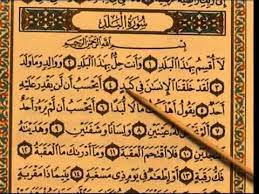 سُورَةُ البَلَدِ
بِسْمِ اللَّهِ الرَّحْمَٰنِ الرَّحِيمِ
لَآ أُقْسِمُ بِهَٰذَا ٱلْبَلَدِ ١ وَأَنتَ حِلٌّۢ بِهَٰذَا ٱلْبَلَدِ ٢ وَوَالِدٍ وَمَا وَلَدَ
٣ لَقَدْ خَلَقْنَا ٱلْإِنسَٰنَ فِى كَبَدٍ ٤ أَيَحْسَبُ أَن لَّن يَقْدِرَ عَلَيْهِ
أَحَدٌ ٥ يَقُولُ أَهْلَكْتُ مَالًا لُّبَدًا ٦ أَيَحْسَبُ أَن لَّمْ يَرَهُۥٓ أَحَدٌ
٧ أَلَمْ نَجْعَل لَّهُۥ عَيْنَيْنِ ٨ وَلِسَانًا وَشَفَتَيْنِ ٩ وَهَدَيْنَٰهُ
ٱلنَّجْدَيْنِ ١٠ فَلَا ٱقْتَحَمَ ٱلْعَقَبَةَ ١١ وَمَآ أَدْرَىٰكَ مَا ٱلْعَقَبَةُ ١٢
فَكُّ رَقَبَةٍ ١٣ أَوْ إِطْعَٰمٌ فِى يَوْمٍ ذِى مَسْغَبَةٍ ١٤ يَتِيمًا ذَا مَقْرَبَةٍ